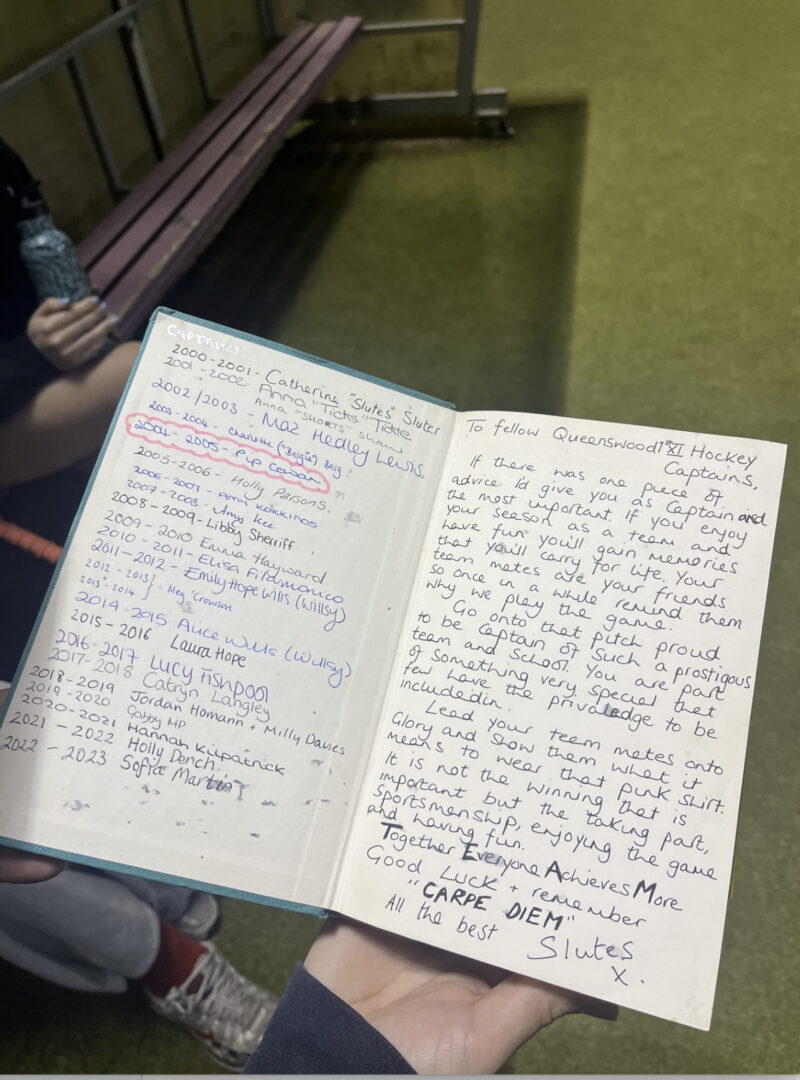 Captains...
2000-2001 - Catherine "Slutes" Sluter
2001-2002 - Anna "Ticks" Tickle
Anna "SHORTS" Shaw
2002/2003 - Maz Hedley Lewis.
2003-2004 - Charlotte ("Bergie") Berg!
2004-2005 - Pip Cowan
2005-2006 - Holly Parsons.
2006-2007 - Anna Kokkinos
2007-2008 - Amy Kee
2008-2009 - Libby Sherriff
2009-2010 Emma Hayward
2010-2011 - Elisa Filamonico
2011-2012 - Emily Hope Wills (Willsy)
2012-2013 } - Meg Crowson
2013-2014
2014-2015 Alice Wills (Willsy)
2015-2016 Laura Hope
2016-2017 Lucy Fishpool
2017-2018 Catryn Langley
2018-2019 Jordan Homann + Milly Davies
2019-2020 Gabby
2020-2021 Hannah Kilpatrick
2021-2022 Holly Dench
2022-2023 Sofia Martin
To fellow Queenswood 1st XI Hockey
Captains,
If there was one piece of
advice I'd give you as Captain and
the most important. If you enjoy
your season as a team and
have fun you'll gain memories
that you'll carry for life. Your
team mates are your friends
so once in a while remind them
why we play the game.
Go onto that pitch proud
to be Captain of such a prostigous
team and School. You are part
of something very special that
few have the privaledge to be
included in.
Lead your team mates onto
Glory and show them what it
means to wear that pink shirt.
It is not the winning that is
important but the taking part,
sportsmanship, enjoying the game
and having fun.
Together Everyone Achieves More
Good Luck + remember
"CARPE DIEM"
All the best
Slutes
x.